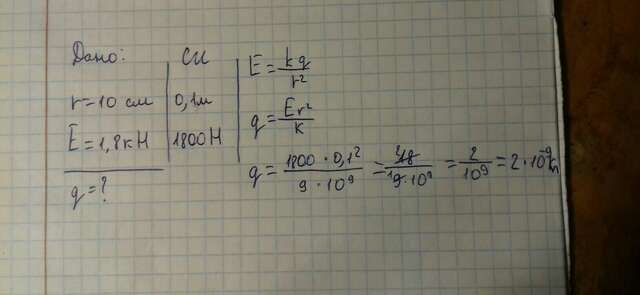 Дано:
r=10 см
E=1,8кН
q=?
СИ
0,1м
1800Н
E = kq/r²
q = Er²/k
q = 1800 · 0,1²/9 · 10⁹ = 18/9·10⁹ = 2/10⁹ = 2·10⁻⁹